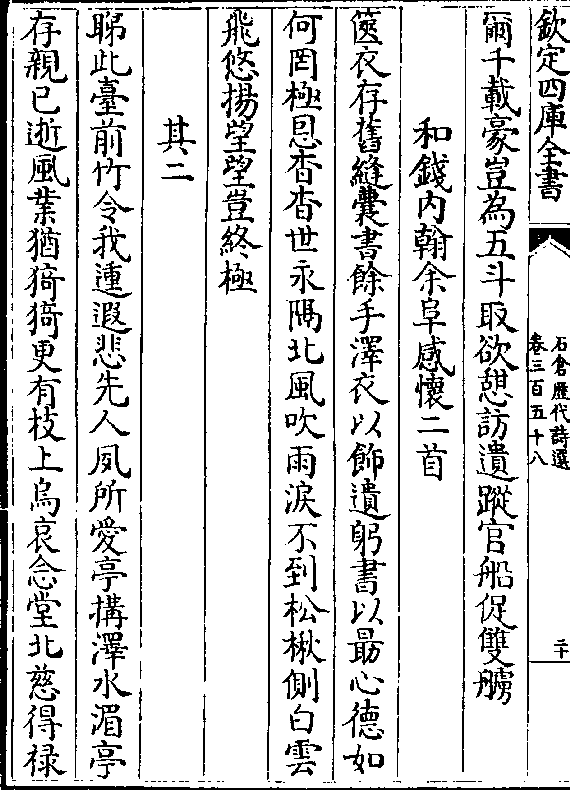 欽定四庫全書
石倉歷代詩選
卷三百五十八
二十
爾千載豪豈為五斗取欲憩訪遺蹤官船促雙艣
和錢内翰余阜感懷二首
篋衣存舊縫囊書餘手澤衣以飾遺躬書以勗心德如
何罔極恩杳杳世永隔北風吹雨淚不到松楸側白雲
飛悠揚望望豈終極
其二
睇此臺前竹令我連遐悲先人夙所愛亭搆澤水湄亭
存親已逝風葉猶猗猗更有枝上烏哀念堂北慈得禄